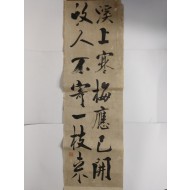 溪上寒梅應已開
故人不寄一枝來